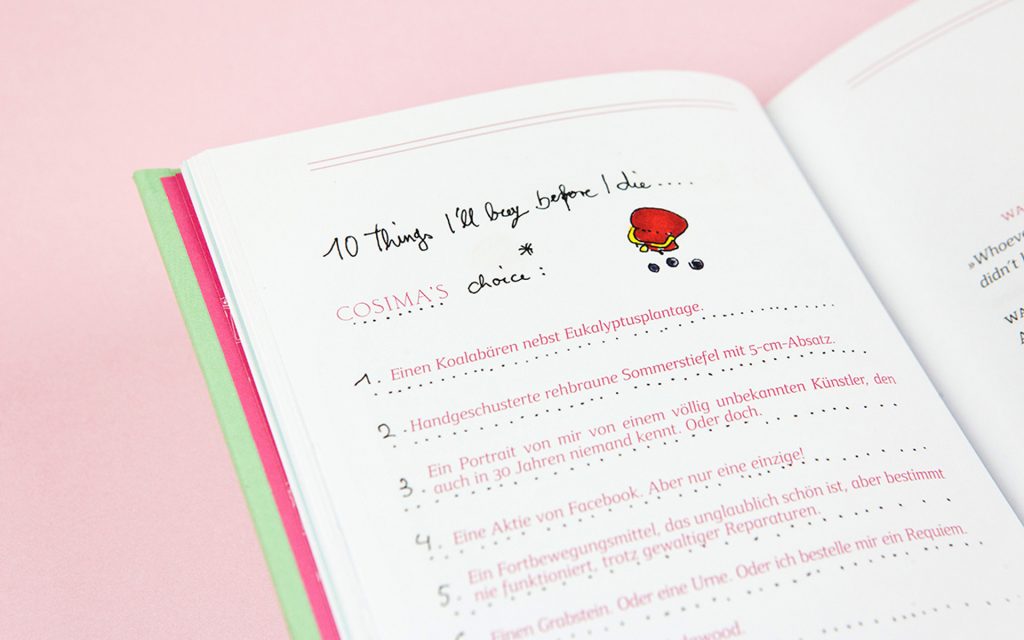 10 things I'll buy before I die.....
*
COSIMA'S choice:
1. Einen Koalabären nebst Eukalyptusplantage.
2. Handgeschusterte rehbraune Sommerstiefel mit 5-cm-Absatz.
3. Ein Portrait von mir von einem völlig unbekannten Künstler, den
auch in 30 Jahren niemand kennt. Oder doch.
4. Eine Aktie von Facebook. Aber nur eine einzige!
5. Ein Fortbewegungsmittel, das unglaublich schön ist, aber bestimmt
nie funktioniert, trotz gewaltiger Reparaturen.
Einen Grabstein. Oder eine Urne. Oder ich bestelle mir ein Requiem.
WA
»Whoeve
didn't
WA